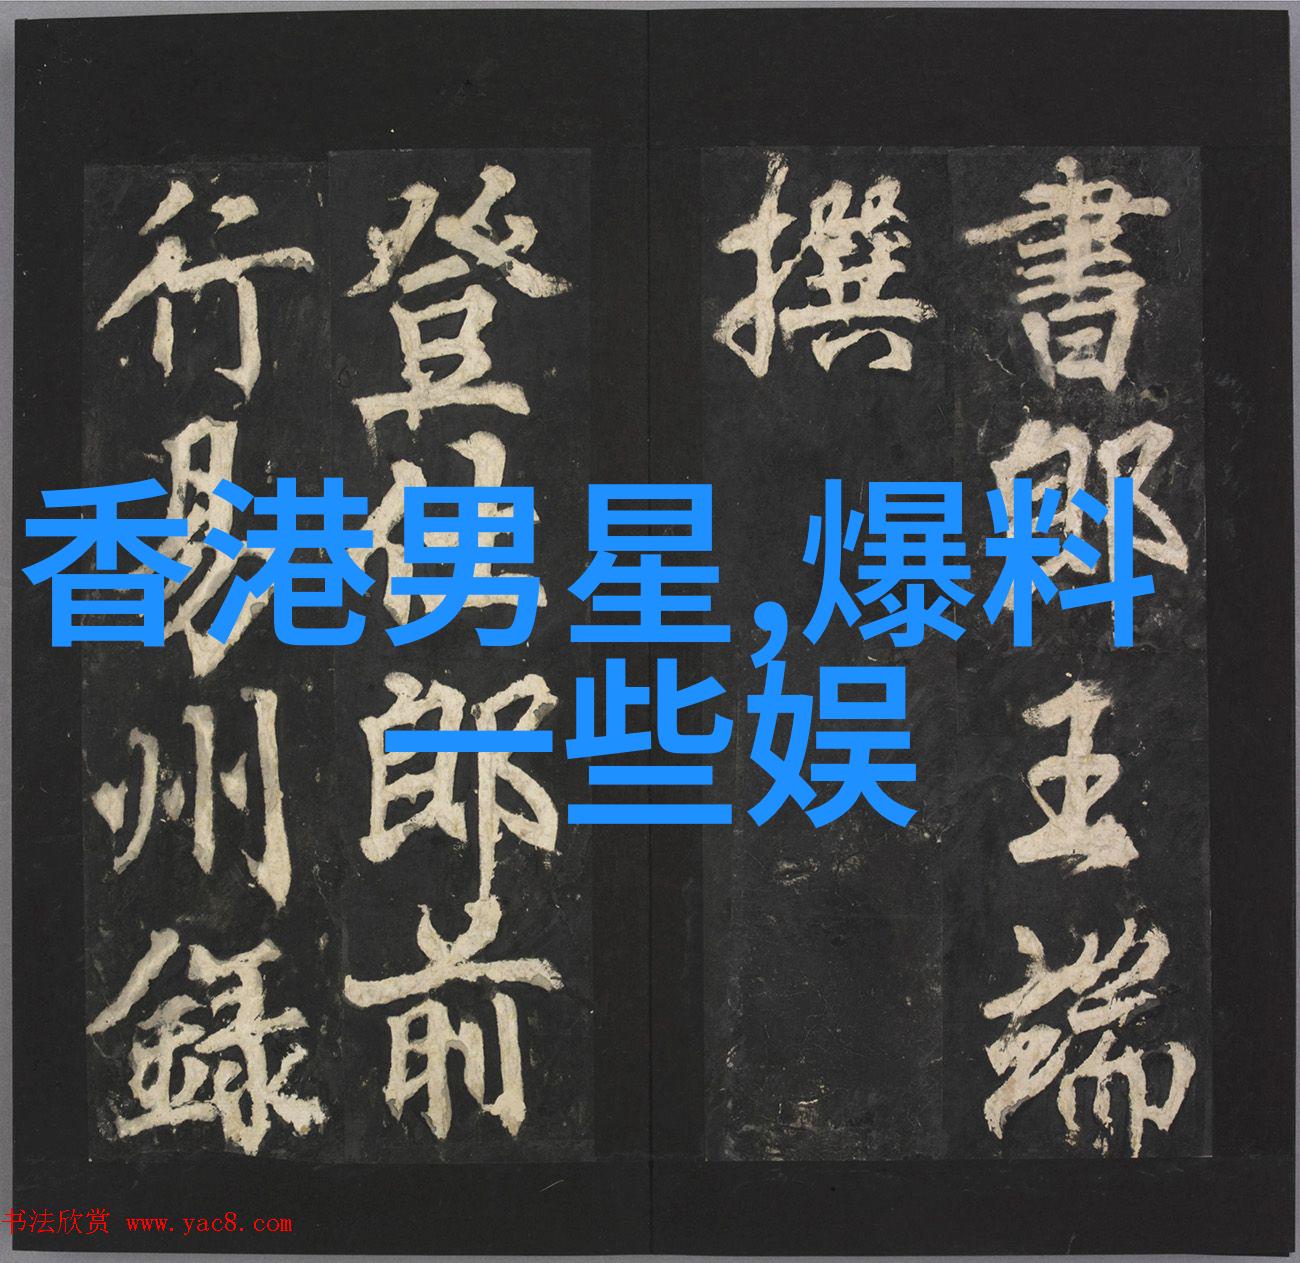 書郎王端
撰
登仕郎前
行易州錄
香港男星,爆料
一些娱
书法欣赏 www.yac8.com